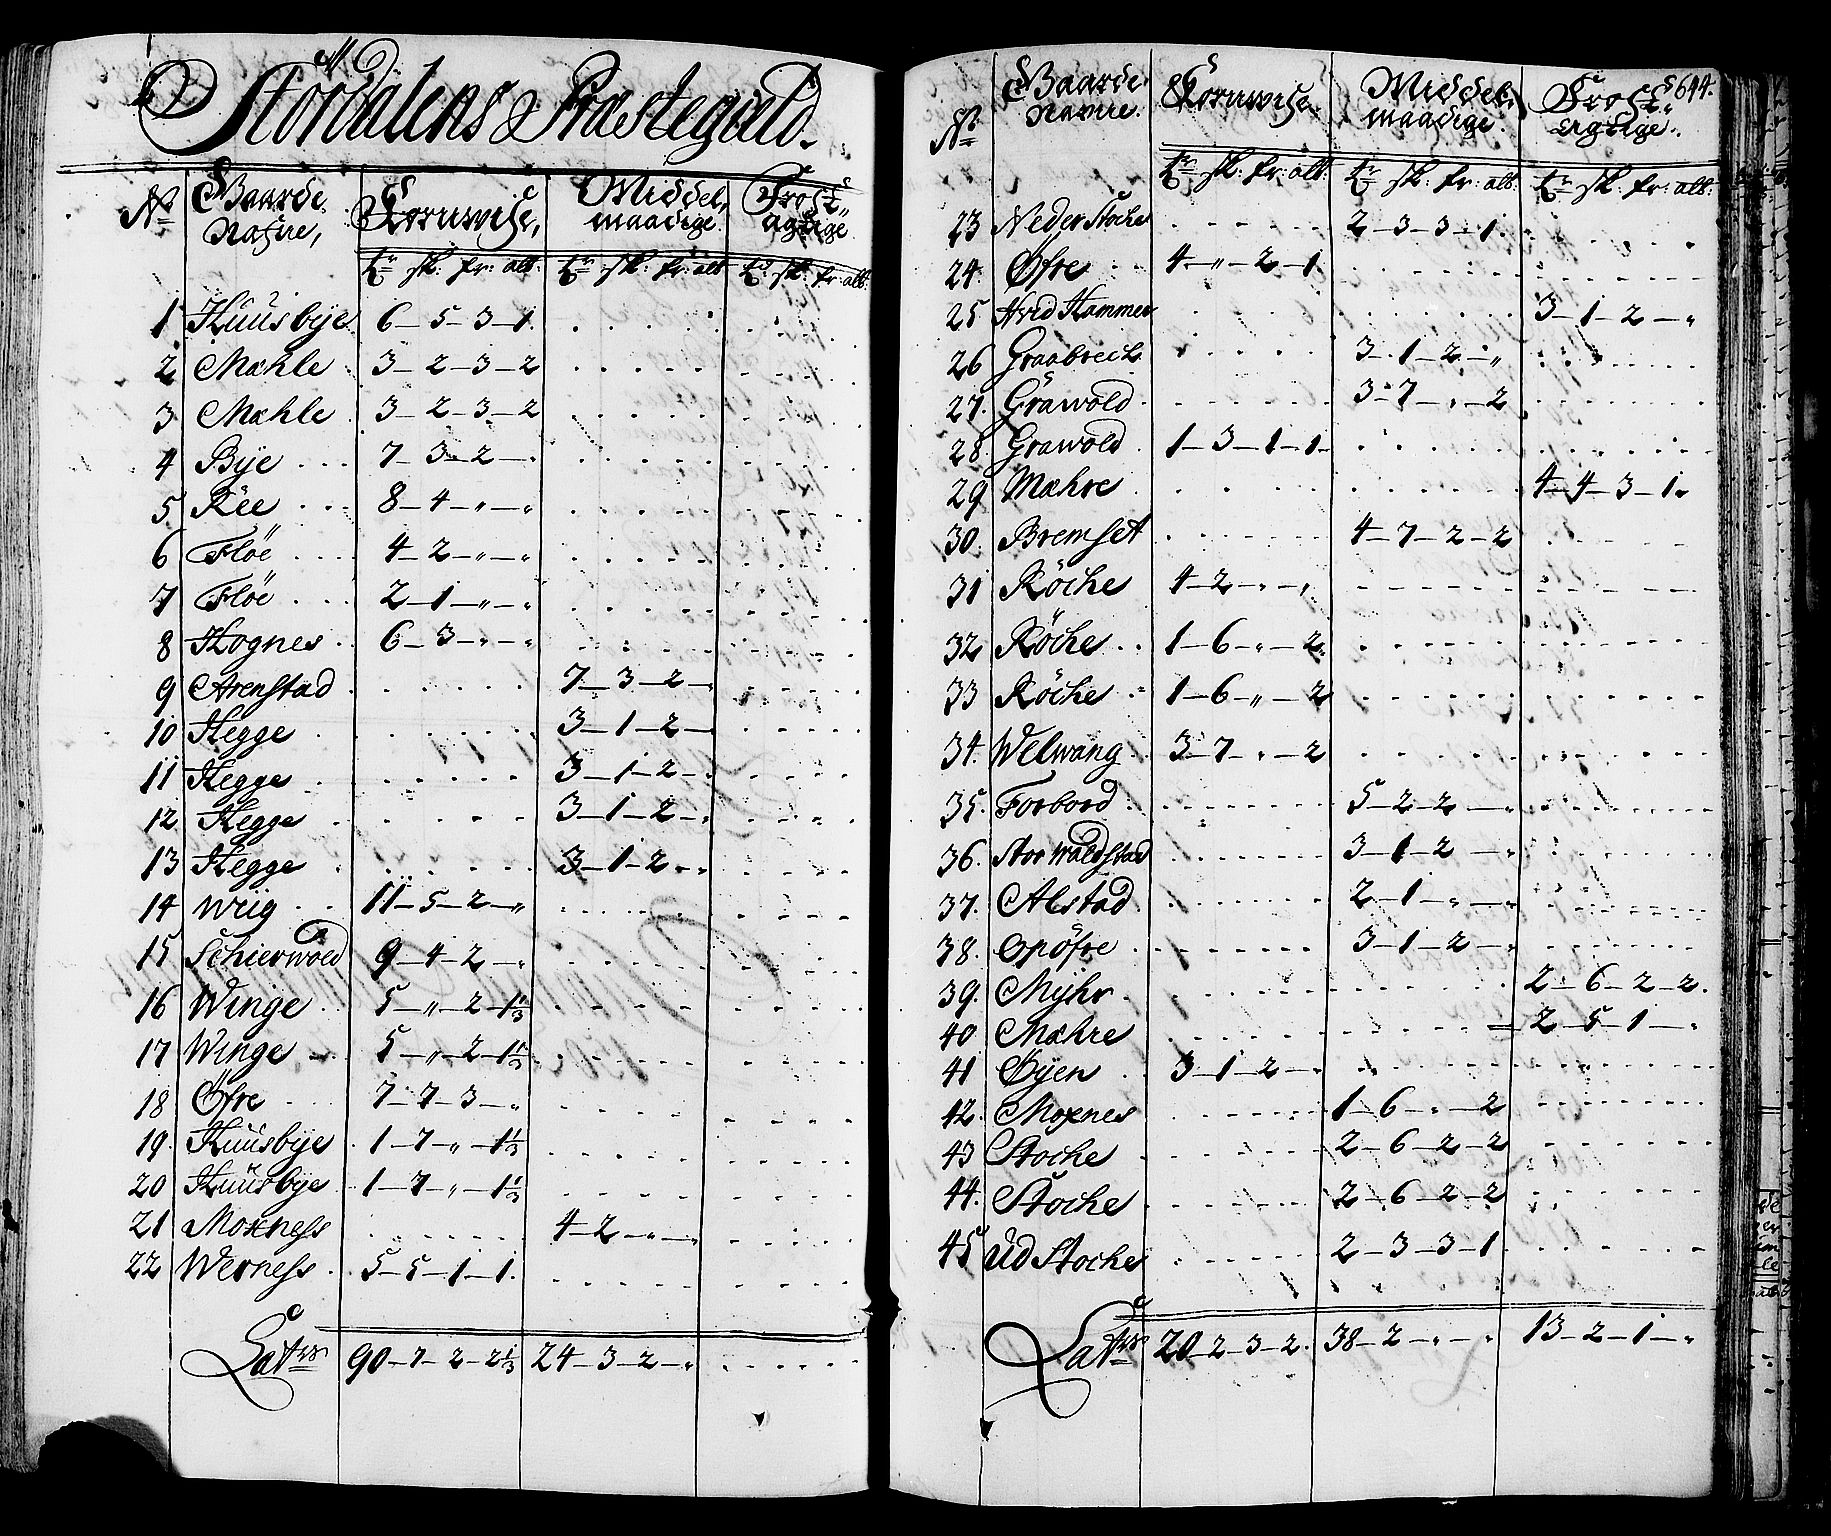 Stördalens Præstegield.
No Gaarde Nafne, Kornwisse, Middel, maadige. Frost,, agtige
tr sk: fr: alb: tr sk: fr: alb tr sk: fr: alb:
1 Huusbye 6-5-3-1.
2 Mæhle 3-2-3-2
3 Mæhle 3-2-3-2
4 Bÿe 7-3-2-.
5 Ree 8-4-"-"
6 Fløe 4-2-"-"
7 Fløe 2-1-"-"
8 Hognes 6-3-"-"
9 Arenstad 7-3-2-"
10 Hegge 3-1-2-
11 Hegge 3-1-2-"
12 Hegge 3-1-2-"
13 Hegge 3-1-2-"
14 Wiig 11-5-2-"
15 Schierwold 9-4-2-"
16 Winge 5-"-2-1⅓
17 Winge 5-"-2-1⅓
18 Öfre 7-7-3-"
19. Huusbÿe 1-7-"-1⅓
20 Huusbÿe 1-7-"-1⅓
21 Moxness 4-2-"-"
22 Werness 5-5-1-1.
Latus 90-7-2-2⅓ 24-3-2-"
644.
No Gaarde Nafne. Kornwisse. Middel, maadige. Frost,, agtige.
tr sk: fr: alb: tr sk: fr: alb: tr sk: fr: alb:
23 Neder Stoche 2-3-3-1.
24. Öfre 4-"-2-1
25 Hvid Hammer 3-1-2-"
26 Graabrech 3-1-2-"
27. Gråwold 3-7-"-2
28. Grawold 1-3-1-1-
29 Mæhre 4-4-3-1.
30. Bremset 4-7-2-2
31 Röche 4-2-"-"
32 Röche 1-6-"-2.
33 Röche 1-6-"-2
34. Welwang 3-7-"-2
35. Forbord 5-2-2-"
36. Stor Waldstad 3-1-2-"
37. Alstad 2-1-"-"
38. Opöfre 3-1-2-"
39. Mÿhr 2-6-2-2.
40 Mæhre 2-5-1-"
41 Öÿen 3-1-2-
42. Moxnes 1-6-"-2
43 Stoche 2-6-2-2
44. Stoche 2-6-2-2
45 Ud Stoche 2-3-3-1
Latus 20-2-3-2. 38-2-"-" 13-2-1-"